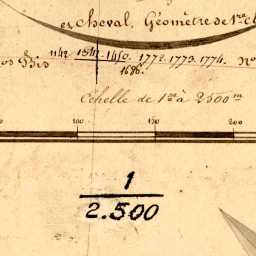 Cheval, Géomètre de 1re cl
Bis 1142 1542. 1450. 1772. 1773. 1774. No
1686.
Echelle de 1m à 2500m
0 100 150 200
1
2.500